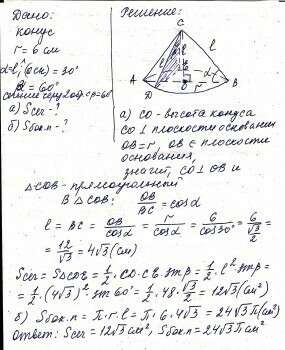 Дано:
конус
r = 6 см
= 30°
= 60°
а) Sсеч - ?
б) Sбок.п - ?
Решение:
C
A
O
B
D
l
l
r
α
а) CO - высота конуса
CO ⊥ плоскости основания
OB = r, OB ∈ плоскости
основания,
значит, CO ⊥ OB и
△COB - прямоугольный
В △COB: OB/BC = cosα
l = BC = OB/cosα = r/cosα = 6/cos30° = 6/(√3/2) =
= 12/√3 = 4√3 (см)
Sсеч = S△DCB = 1/2 · CD · CB · sinβ = 1/2 · l² · sinβ =
= 1/2 · (4√3)² · sin 60° = 1/2 · 48 · √3/2 = 12√3 (см²)
б) Sбок.п = π · r · l = π · 6 · 4√3 = 24√3 π (см²)
Ответ: Sсеч = 12√3 см², Sбок.п = 24√3 π см²